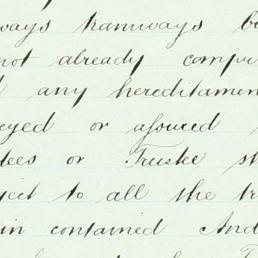 ways tramways b
not already compu
any hereditamen
eyed or assured
tees or Trustee s
ject to all the tr
in contained And